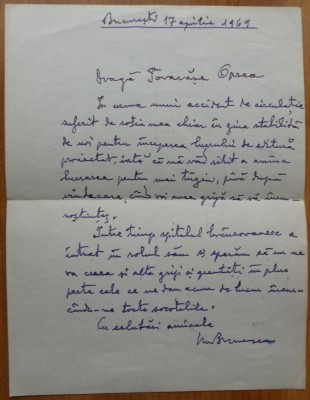 București 17 aprilie 1969
Dragă Tovarășe Oprea
În urma unui accident de circulație
suferit de soția mea chiar în ziua stabilită
de noi pentru începerea lucrului de editură
proiectat, iată că mă văd silit a amîna
lucrarea pentru mai tîrziu, pînă după
vindecare, cînd voi avea grijă să vă încu-
noștințez.
Între timp spitalul brîncovenesc a
intrat în rolul său și sperăm că nu ne
va crea și alte griji și greutăți în plus
peste cele ce ne dau acum de lucru încur-
cîndu-ne toate socotelile.
Cu salutări amicale